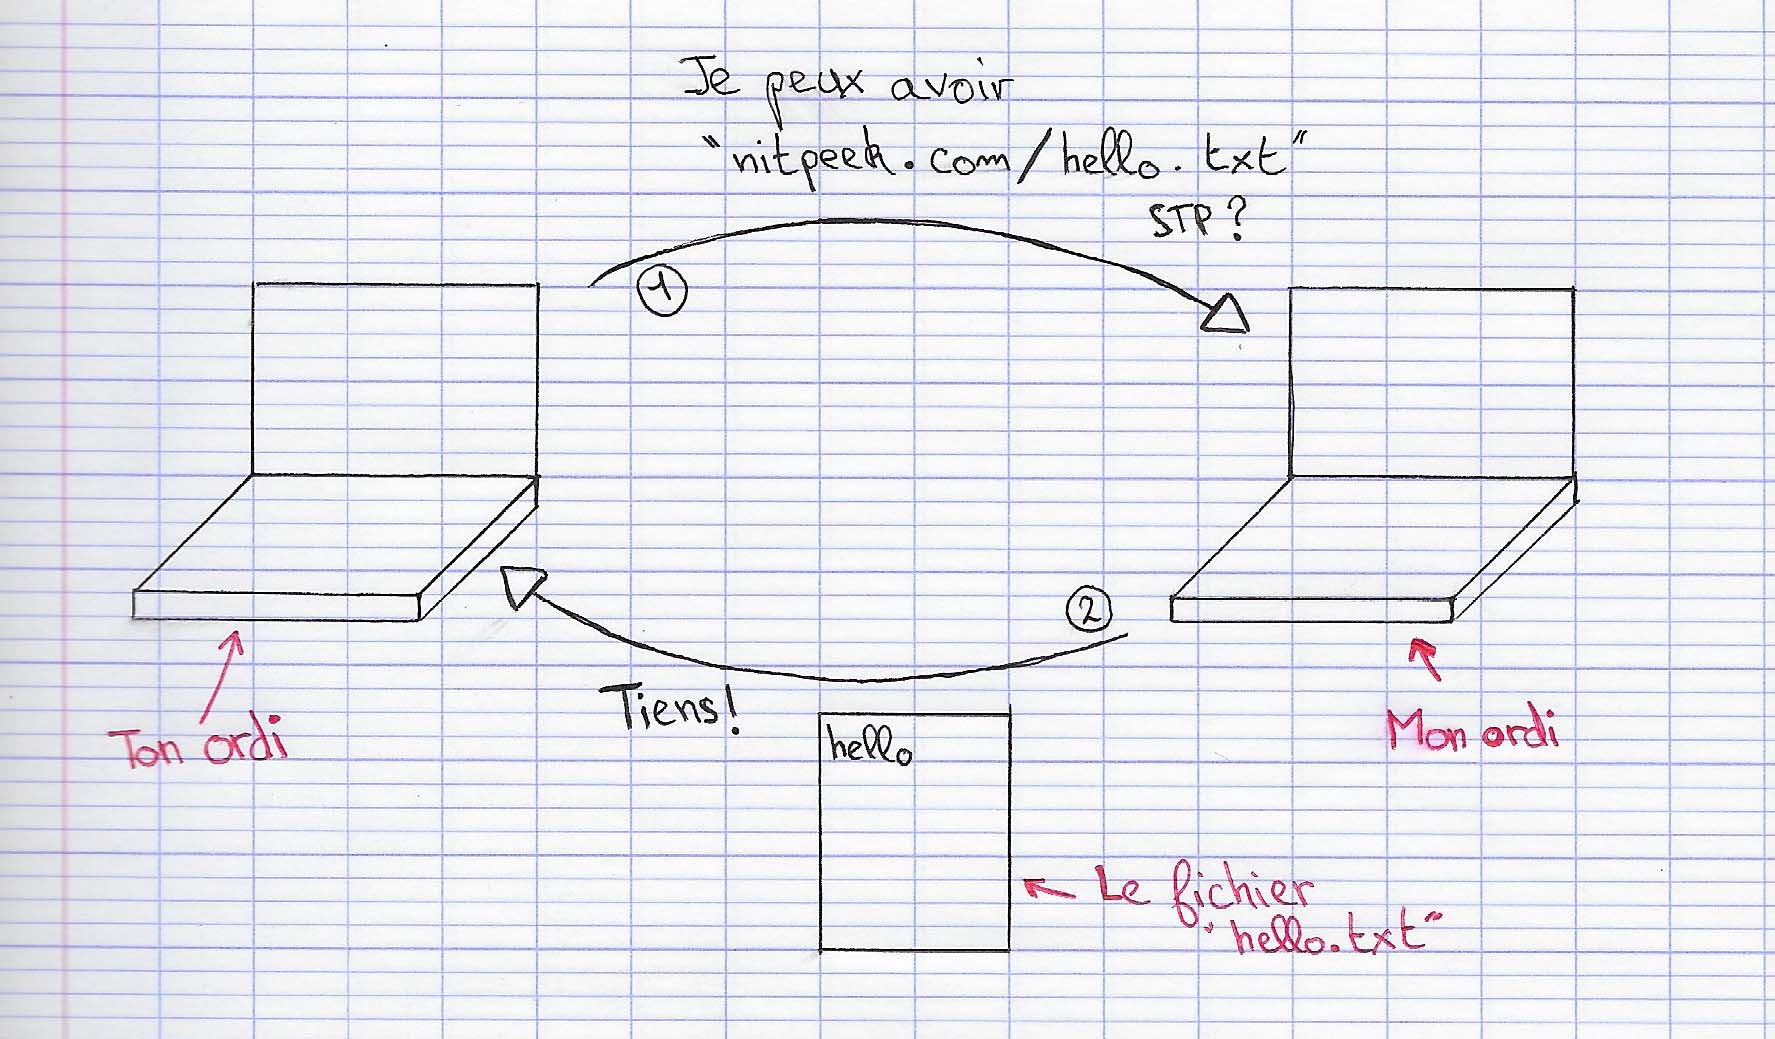 Je peux avoir
"nitpeek.com/hello.txt"
STP?
1
2
Tiens!
hello
Ton ordi
Mon ordi
Le fichier
"hello.txt"